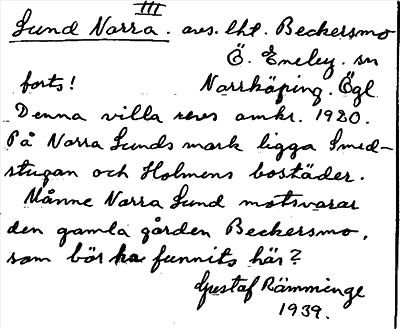 III
Lund Norra. avs. lht. Beckersmo
Ö. Eneby. sn
forts! Norrköping. Ögl
Denna villa revs omkr. 1920.
På Norra Lunds mark ligga Smed-
stugan och Holmens bostäder.
Månne Norra Lund motsvarar
den gamla gården Beckersmo,
som bör ha funnits här?
Gustaf Rämminge
1939.